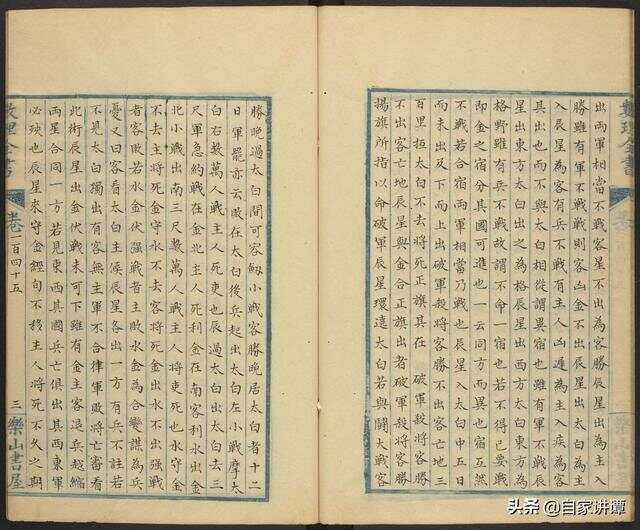 數理全書
出兩軍相當不戰客星不出為客勝辰星出為主入
勝雖有軍不戰戰則客凶金不出辰星出太白為主
入辰星為客有兵不戰有主人凶遍為主入疾為客
其出也而不與太白相從謂異宿也雖有軍不戰辰
星出東方太白出之為格辰星出西方太白東方為
格野雖有兵不戰故謂不命一宿也若不得已要戰
即金之宿分其國可進也一云同方而異也宿互然
不戰若合宿兩軍相當乃戰也辰星入太白中五日
而未出及下而上出破軍殺將客勝不出客亡地三
百里抵太白不去將死正旗其在 破軍殺將客勝
不出客亡地辰星與金合正旗出者破軍殺將客勝
揚旗所指以命破軍辰星環遶太白若與鬪大戰客
勝晚過太白間可容劔小戰客勝晚居太白者十二
日軍罷亦云晚在太白後兵起出太白左小戰摩太
白右數萬人戰主人死吏也辰過太白出太白去三
尺軍急約戰在金北主人死利金在南客利水出金
北小戰出南三尺數萬人戰主人將吏死也水守金
不去主將死金守水不去客將死金出水不出強戰
客敗若水金伏強戰者主敗水金為合變謀為兵
憂又曰客看太白主侯辰星各出一方有兵不註若
不見太白獨出有客無主軍不合律軍敗將亡審看
北術辰星出金伏戰未可下雖有金主客退兵趍縮
兩星合同一方若見東西其國兵亡俱出其西東軍
必殃也辰星來守金經句不移主人將死不久之期
數理全書 卷二百四十五 三 樂山書屋
头条 @自家讲谭